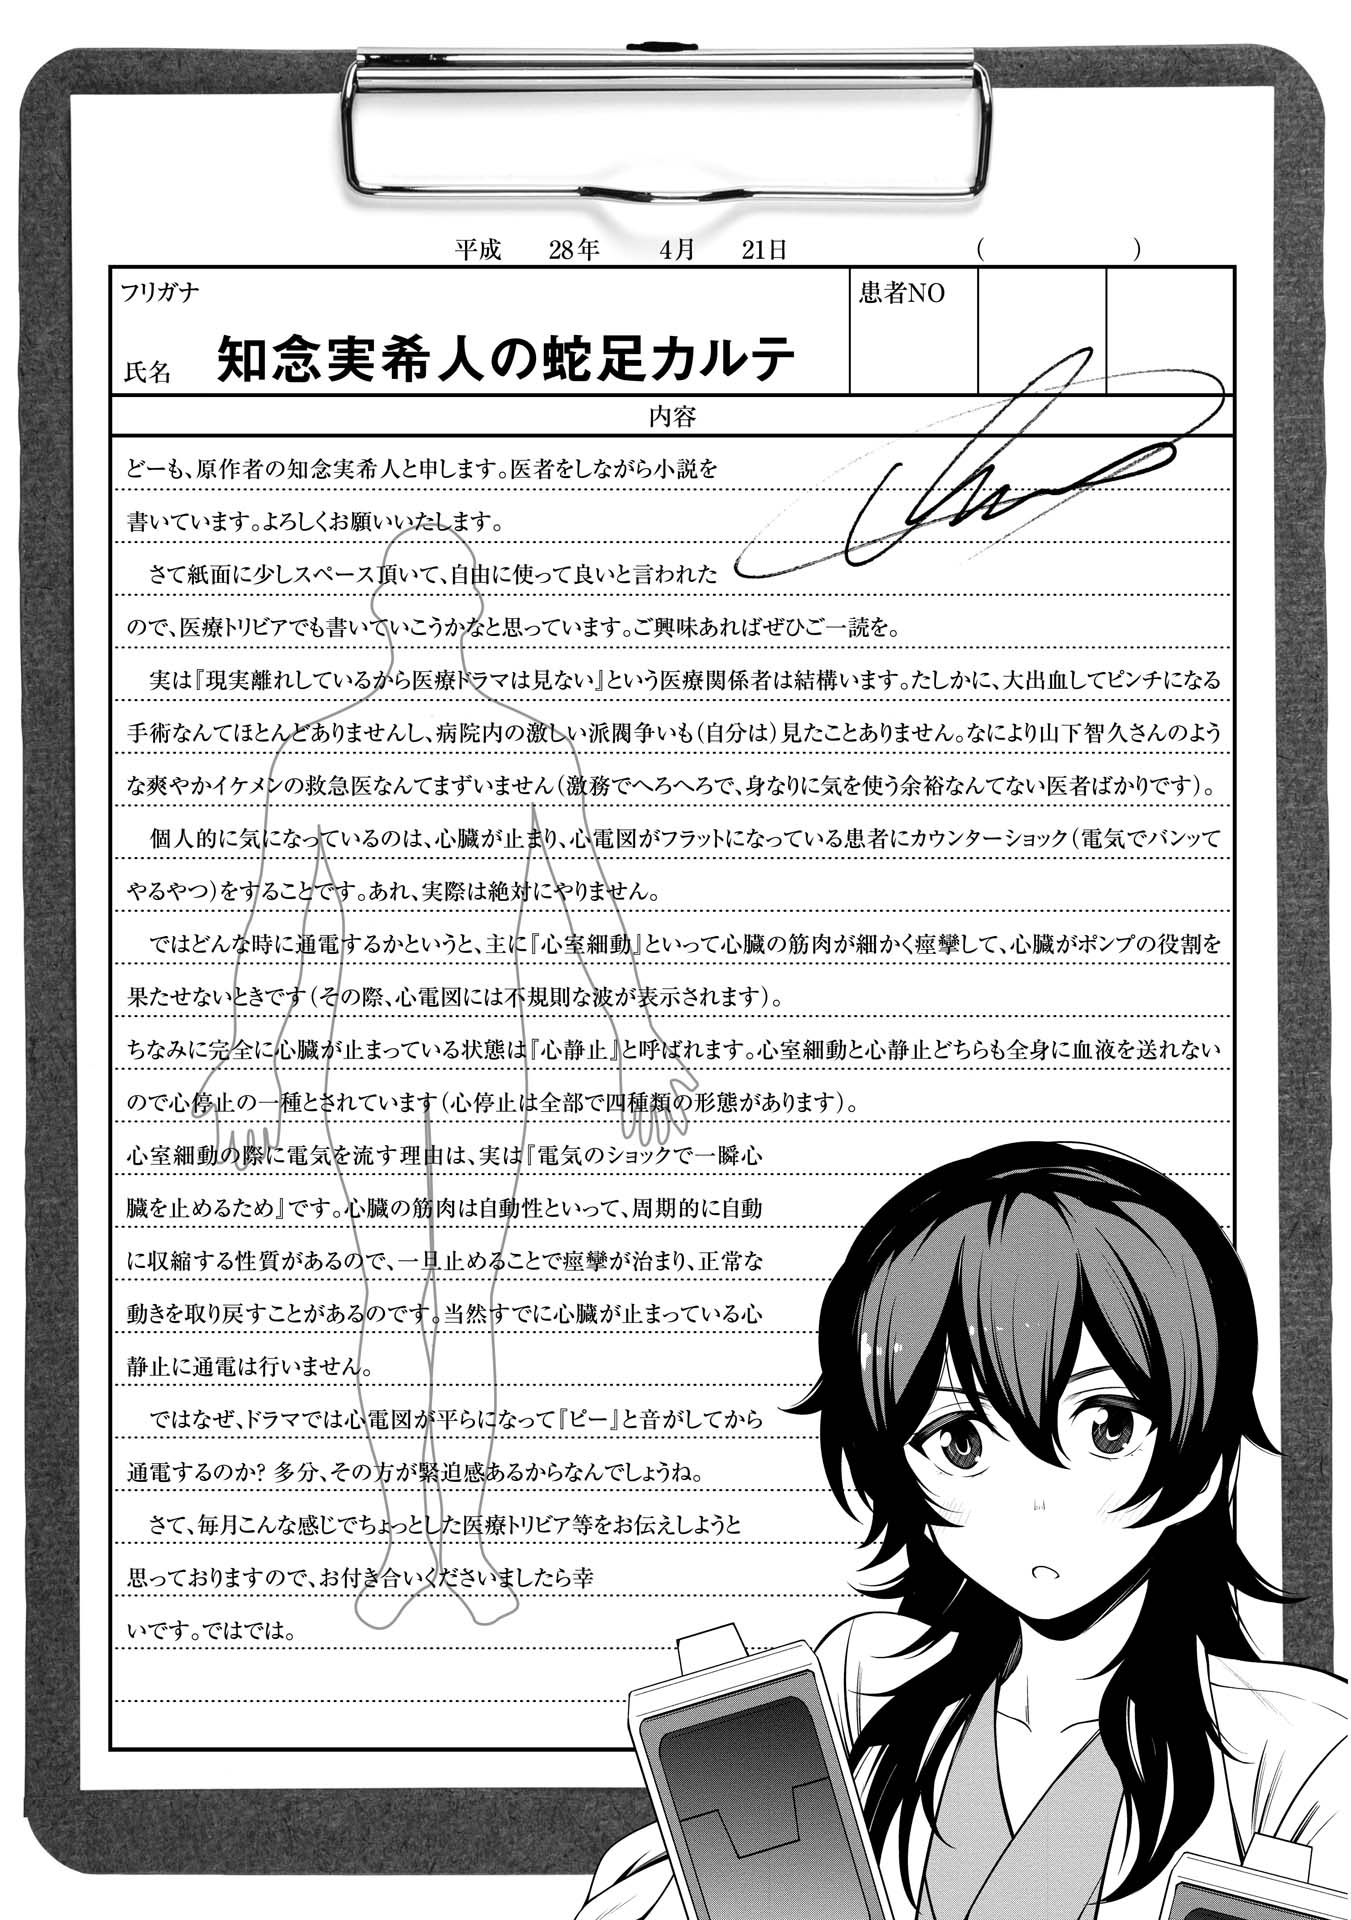 平成 28年 4月 21日 ( )
フリガナ
患者NO
氏名 知念実希人の蛇足カルテ
内容
どーも、原作者の知念実希人と申します。医者をしながら小説を
書いています。よろしくお願いいたします。
さて紙面に少しスペース頂いて、自由に使って良いと言われた
ので、医療トリビアでも書いていこうかなと思っています。ご興味あればぜひご一読を。
実は『現実離れしているから医療ドラマは見ない』という医療関係者は結構います。たしかに、大出血してピンチになる
手術なんてほとんどありませんし、病院内の激しい派閥争いも(自分は)見たことありません。なにより山下智久さんのよう
な爽やかイケメンの救急医なんてまずいません(激務でへろへろで、身なりに気を使う余裕なんてない医者ばかりです)。
個人的に気になっているのは、心臓が止まり、心電図がフラットになっている患者にカウンターショック(電気でバンッて
やるやつ)をすることです。あれ、実際は絶対にやりません。
ではどんな時に通電するかというと、主に『心室細動』といって心臓の筋肉が細かく痙攣して、心臓がポンプの役割を
果たせないときです(その際、心電図には不規則な波が表示されます)。
ちなみに完全に心臓が止まっている状態は『心静止』と呼ばれます。心室細動と心静止どちらも全身に血液を送れない
ので心停止の一種とされています(心停止は全部で四種類の形態があります)。
心室細動の際に電気を流す理由は、実は『電気のショックで一瞬心
臓を止めるため』です。心臓の筋肉は自動性といって、周期的に自動
に収縮する性質があるので、一旦止めることで痙攣が治まり、正常な
動きを取り戻すことがあるのです。当然すでに心臓が止まっている心
静止に通電は行いません。
ではなぜ、ドラマでは心電図が平らになって『ピー』と音がしてから
通電するのか? 多分、その方が緊迫感あるからなんでしょうね。
さて、毎月こんな感じでちょっとした医療トリビア等をお伝えしようと
思っておりますので、お付き合いくださいましたら幸
いです。ではでは。